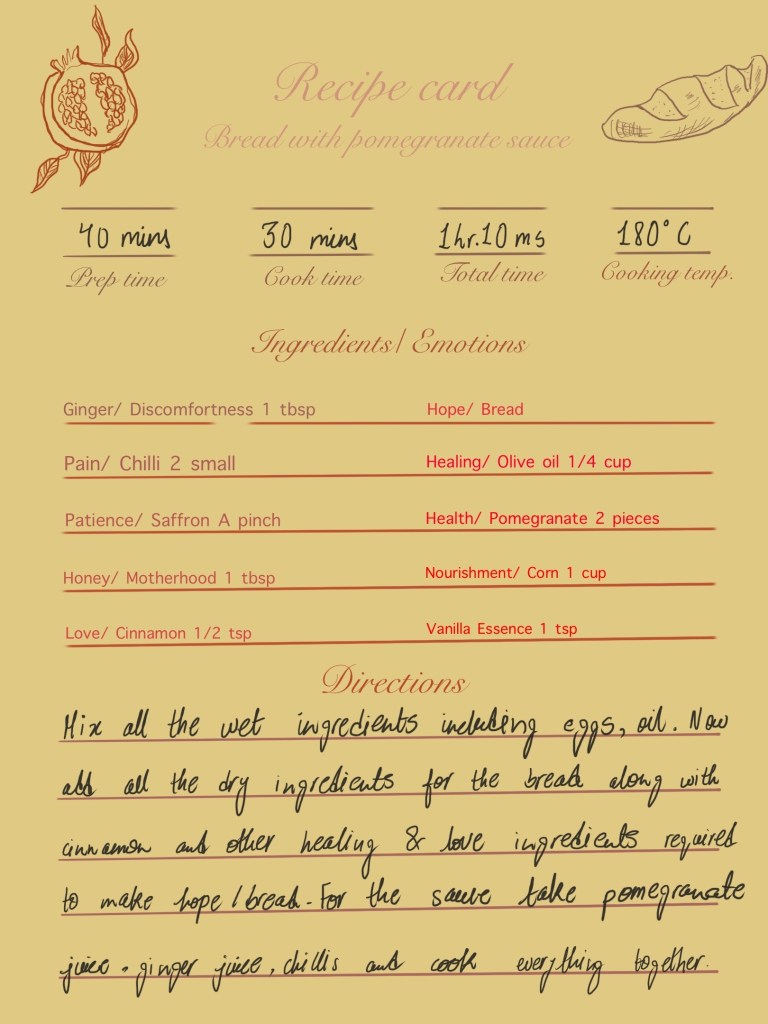 Recipe card
Bread with pomegranate sauce
40 mins 30 mins 1hr.10 ms 180°C
Prep time Cook time Total time Cooking temp.
Ingredients/ Emotions
Ginger/ Discomfortness 1 tbsp Hope/ Bread
Pain/ Chilli 2 small Healing/ Olive oil 1/4 cup
Patience/ Saffron A pinch Health/ Pomegranate 2 pieces
Honey/ Motherhood 1 tbsp Nourishment/ Corn 1 cup
Love/ Cinnamon 1/2 tsp Vanilla Essence 1 tsp
Directions
Mix all the wet ingredients including eggs, oil. Now
add all the dry ingredients for the bread along with
cinnamon and other healing & love ingredients required
to make hope/bread. For the sauce take pomegranate
juice, ginger juice, chillis and cook everything together.